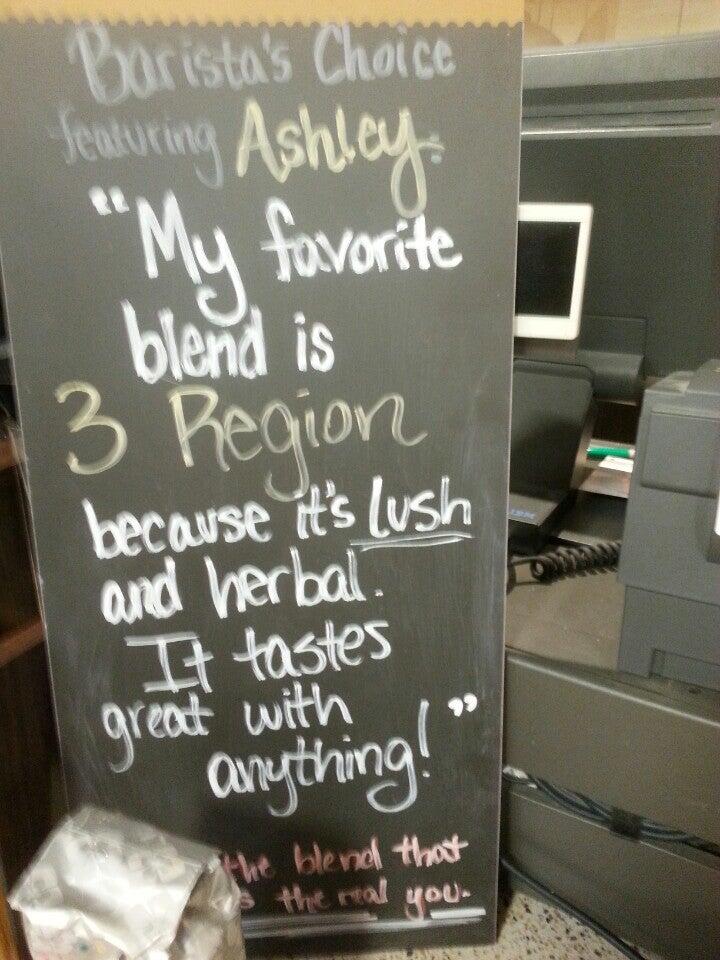 Barista's Choice
featuring Ashley:
"My favorite
blend is
3 Region
because it's lush
and herbal.
It tastes
great with
anything!"
the blend that
the real you.
IBM